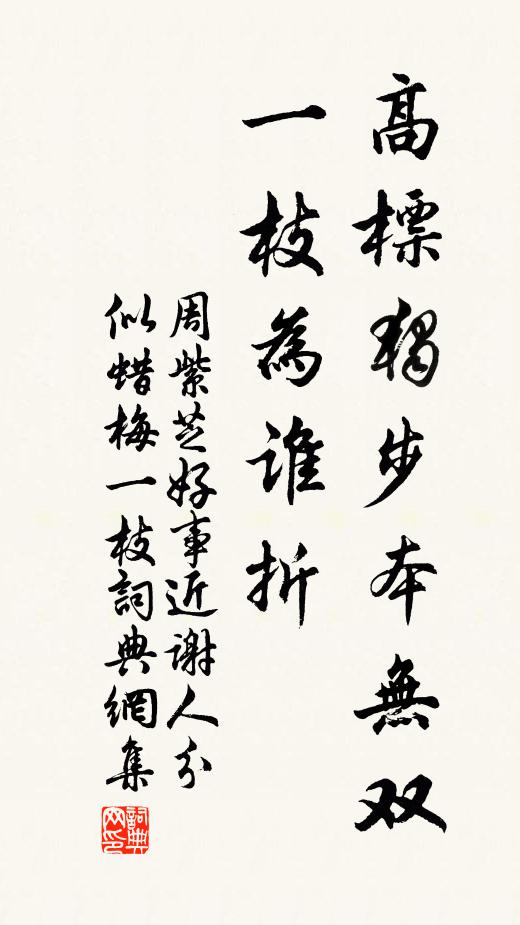 高標獨步本無双
一枝為誰折
周紫芝好事近謝人分
似蜡梅一枝詞典網集
詞典
网印